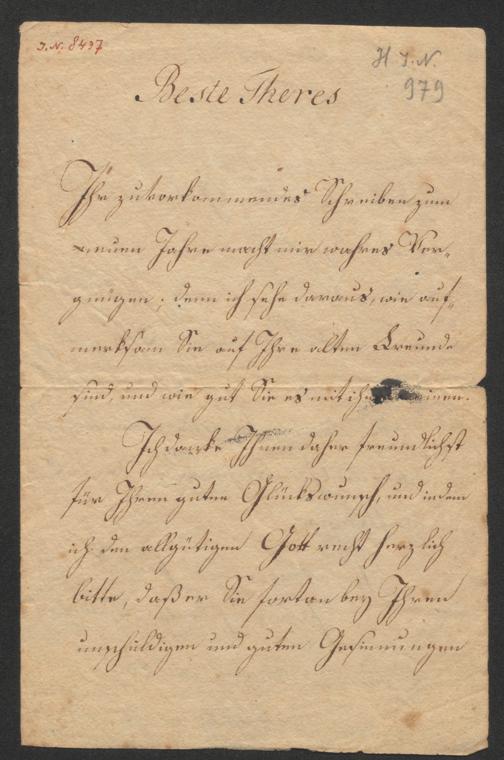 J. N. 8497
H J. N.
979
Beste Theres
Ihr zuvorkommendes Schreiben zum
neuen Jahre macht mir wahres Ver-
gnügen; denn ich sehe daraus, wie auf-
merksam Sie auf Ihre alten Freunde
sind, und wie gut Sie es mit meinen.
Ich danke Ihnen daher freundlichst
für Ihren guten Glückswunsch, und indem
ich den allgütigen Gott recht herzlich
bitte, daß er Sie fortan bey Ihren
unschuldigen und guten Gesinnungen